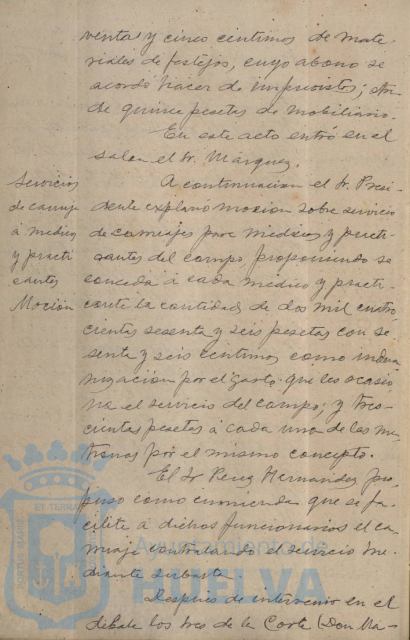 venta y cinco centimos de mate-
riales de festejos, cuyo abono se
acordó hacer de imprevistos; otra
de quince pesetas de mobiliario.
En este acto entró en el
salon el Sr. Márquez.
Servicios
de carruaje
á medicos
y practi
cantes
Moción
A continuacion el Sr. Presi-
dente explanó mocion sobre servicio
de carruajes para medicos y practi
cantes del campo, proponiendo se
conceda á cada medico y practi-
cante la cantidad de dos mil cuatro
cientas sesenta y seis pesetas con se
senta y seis centimos como indem
nización por el gasto que les ocasio
na el servicio del campo, y tres-
cientas pesetas á cada una de las ma-
tronas por el mismo concepto.
El Sr Perez Hernandez pro
puso como enmienda que se fa-
cilite á dichos funcionarios el ca-
rruaje contratando el servicio me-
diante subasta.
Después de intervenir en el
debate los Sres de la Corte (Don Ma-
Ayuntamiento de
HUELVA